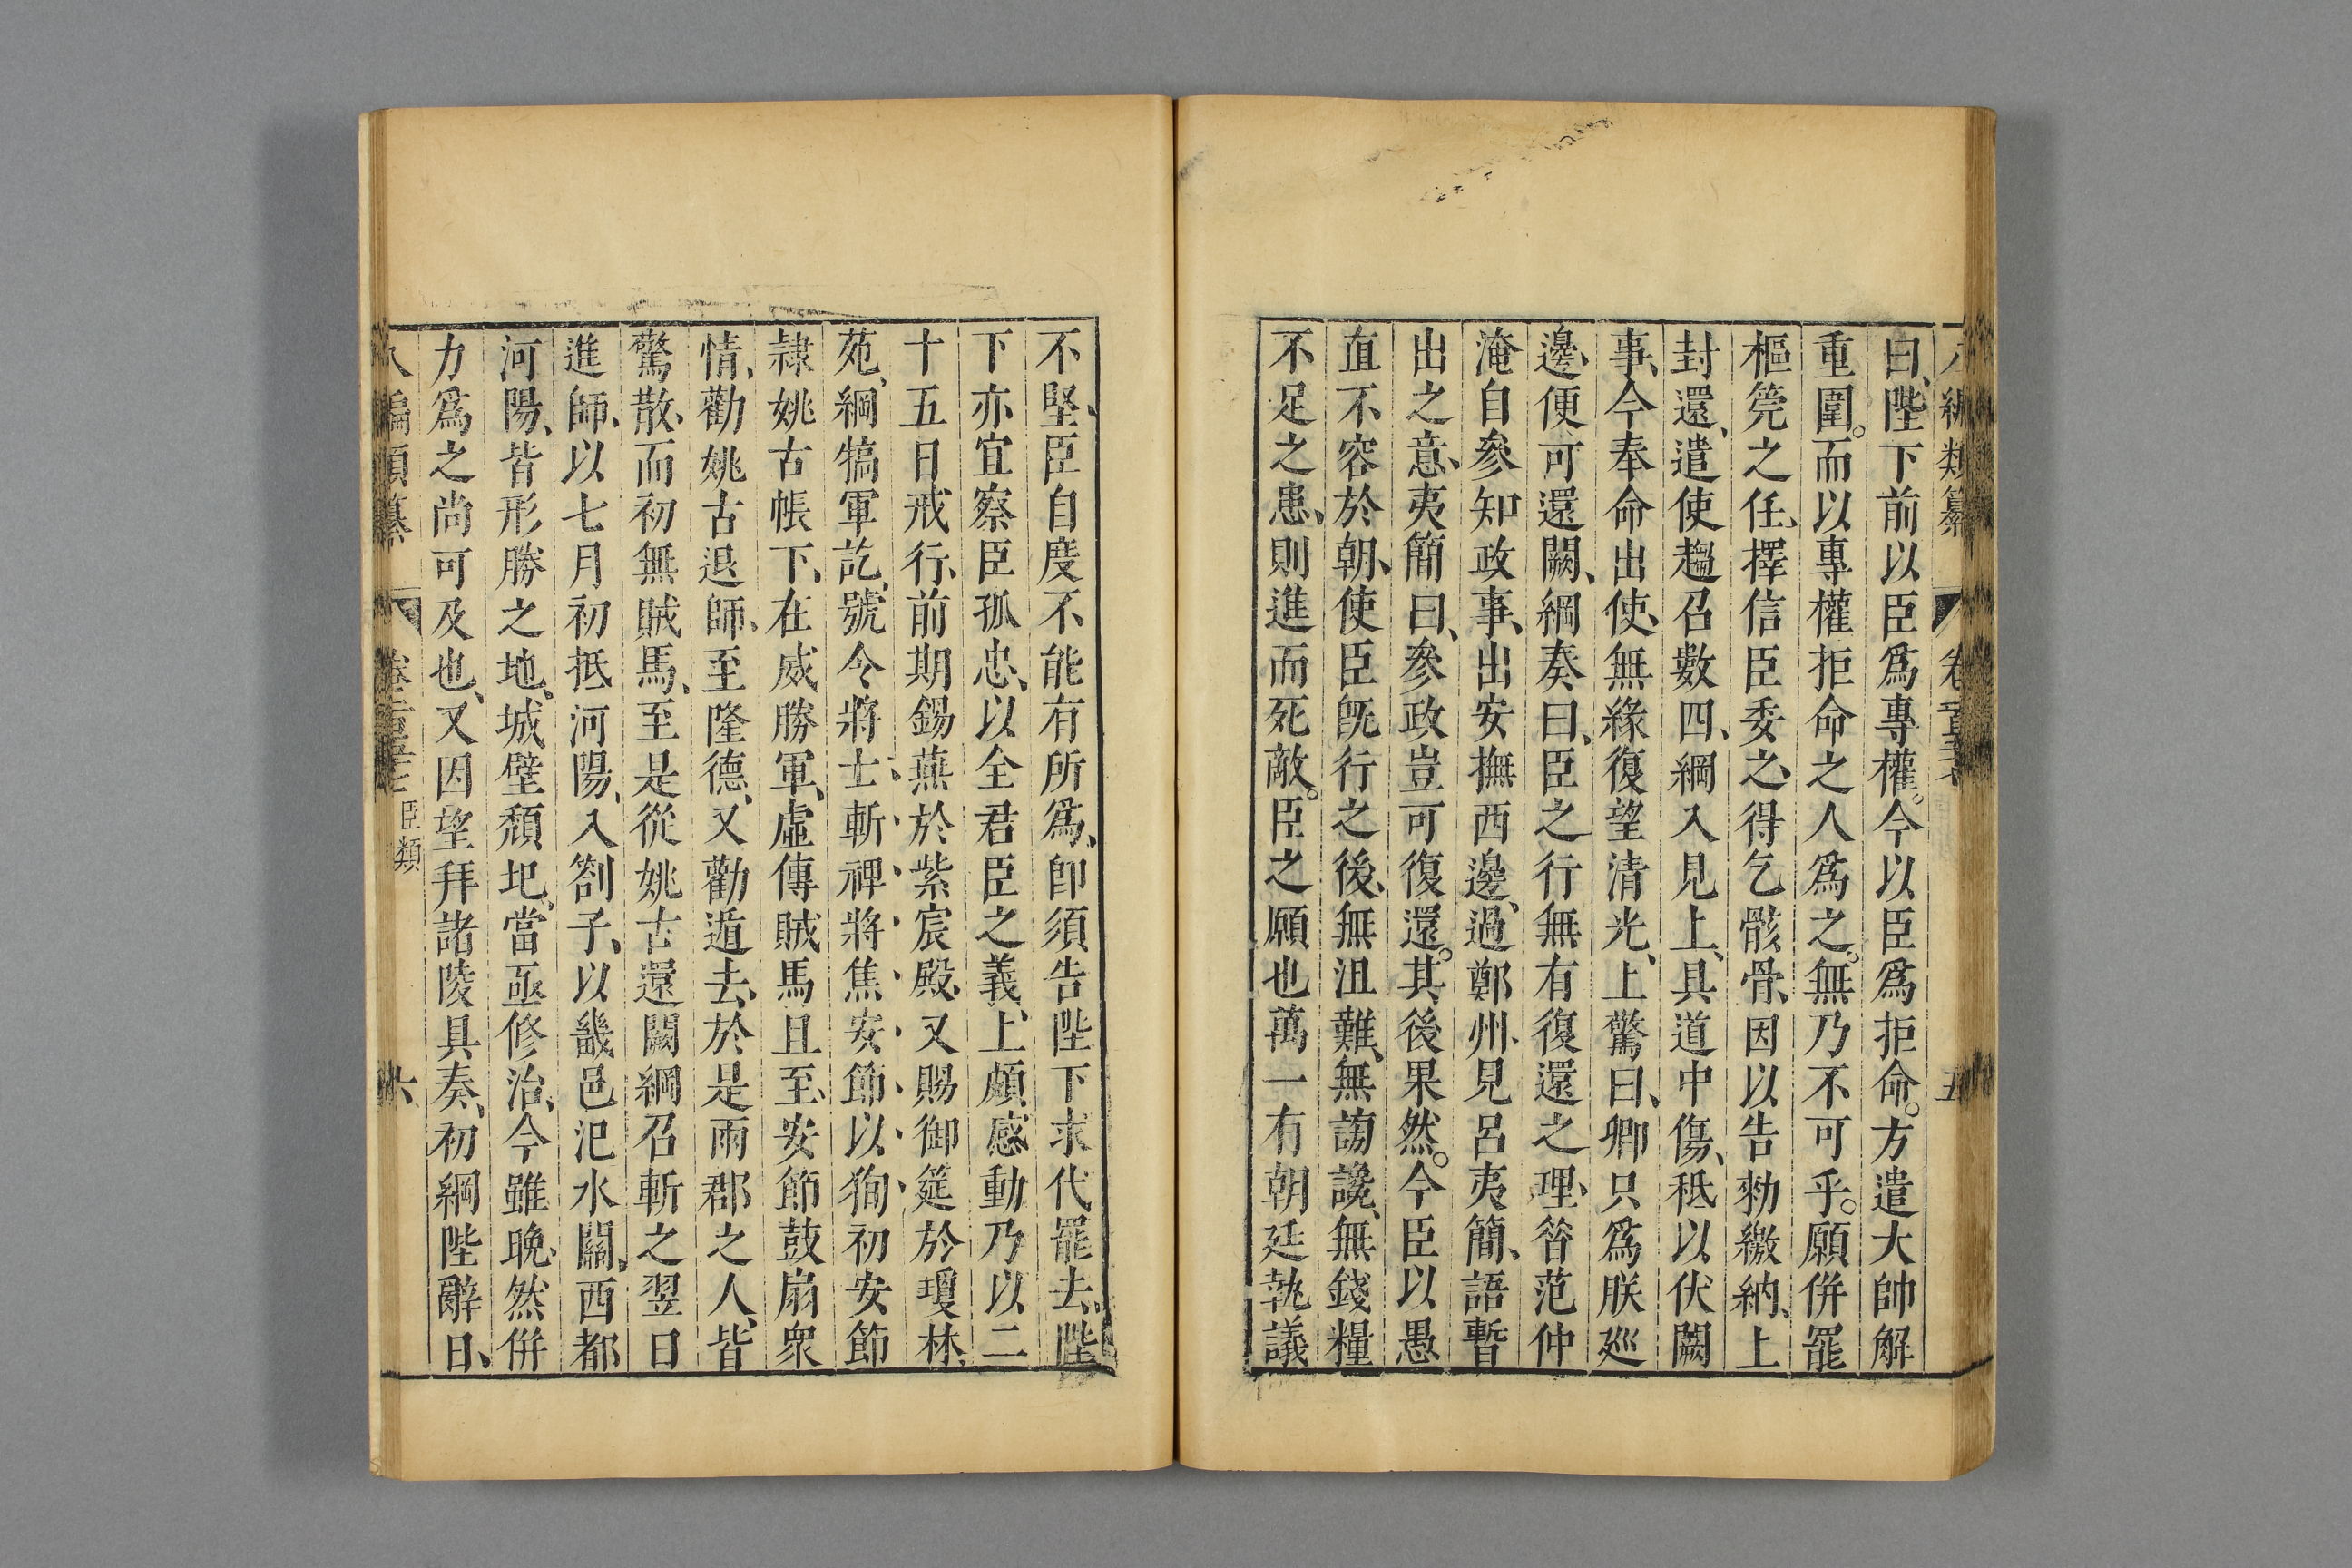 曰、陛下前以臣爲專權。今以臣爲拒命。方遣大帥解
重圍。而以專權拒命之人爲之。無乃不可乎。願併罷
樞筦之任、擇信臣委之、得乞骸骨、因以告勑繳納、上
封還、遣使趨召數四、綱入見上、具道中傷、秪以伏闕
事、今奉命出使、無緣復望清光、上驚曰、卿只爲朕廵
邊、便可還闕、綱奏曰、臣之行無有復還之理、昝范仲
淹自參知政事、出安撫西邊、過鄭州、見呂夷簡、語暫
出之意、夷簡曰、參政豈可復還。其後果然。今臣以愚
直不容於朝、使臣旣行之後、無沮難、無謗讒、無錢糧
不足之患、則進而死敵。臣之願也萬一有朝廷執議
不堅、臣自度不能有所爲、卽須告陛下求代罷去。陛
下亦宜察臣孤忠、以全君臣之義、上頗感動乃以二
十五日戒行、前期錫燕於紫宸殿、又賜御筵於瓊林
苑、綱犒軍訖、號令將士、斬裨將焦安節以狥初安節
隷姚古帳下、在威勝軍、虛傳賊馬且至、安節鼓扇衆
情、勸姚古退師、至隆德、又勸遁去、於是兩郡之人、皆
驚散、而初無賊馬、至是從姚古還闕綱召斬之翌日
進師、以七月初抵河陽、入劄子、以畿邑汜水關、西都
河陽、皆形勝之地、城壁頹圮、當亟修治、今雖晚、然併
力爲之尚可及也、又因望拜諸陵具奏、初綱陛辭日、
臣類
六